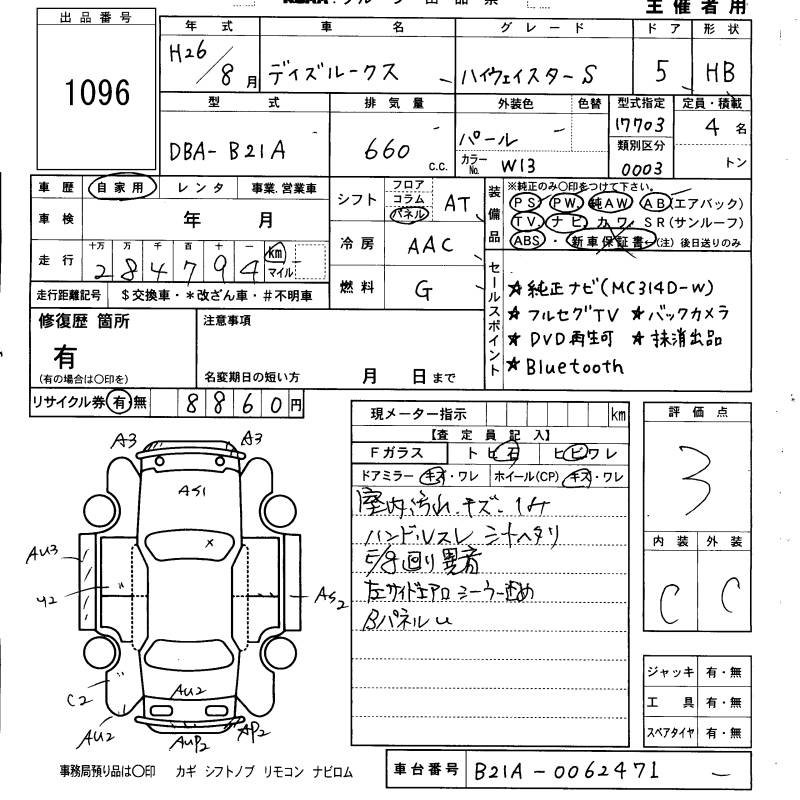 主催者用
出品番号
1096
年式 車名 グレード ドア 形状
H26/8月 デイズルークス ハイウェイスターS 5 HB
型式 排気量 外装色 色替 型式指定 定員・積載
DBA-B21A 660 c.c. パール 17703 4名
カラーNo. W13 類別区分 0003 トン
車歴 自家用 レンタ 事業.営業車
車検 年 月
走行 十万 万 千 百 十 一
284794 km マイル
走行距離記号 $交換車・*改ざん車・#不明車
シフト フロア コラム パネル AT
冷房 AAC
燃料 G
装備品 ※純正のみ○印をつけて下さい。
PS PW. 純AW AB(エアバック)
TV. ナビ カワ SR(サンルーフ)
ABS・新車保証書(注)後日送りのみ
セールスポイント
★純正ナビ(MC314D-W)
★フルセグTV ★バックカメラ
★DVD再生可 ★抹消出品
★Bluetooth
修復歴 箇所
有
(有の場合は○印を)
注意事項
名変期日の短い方 月 日まで
リサイクル券 有・無 8860円
現メーター指示 km
【査定員記入】
Fガラス トビ石 ヒビワレ
ドアミラー キズ・ワレ ホイール(CP) キズ・ワレ
室内汚れ キズ
ハンドルスレ シートヘタリ
異音
左サイドエアロ
Bパネルu
評価点
3
内装 外装
C C
ジャッキ 有・無
工具 有・無
スペアタイヤ 有・無
A3 A3
AS1
AU3
AS2
C2
AU2
AU2
AUP2
AP2
事務局預り品は○印 カギ シフトノブ リモコン ナビロム
車台番号 B21A-0062471